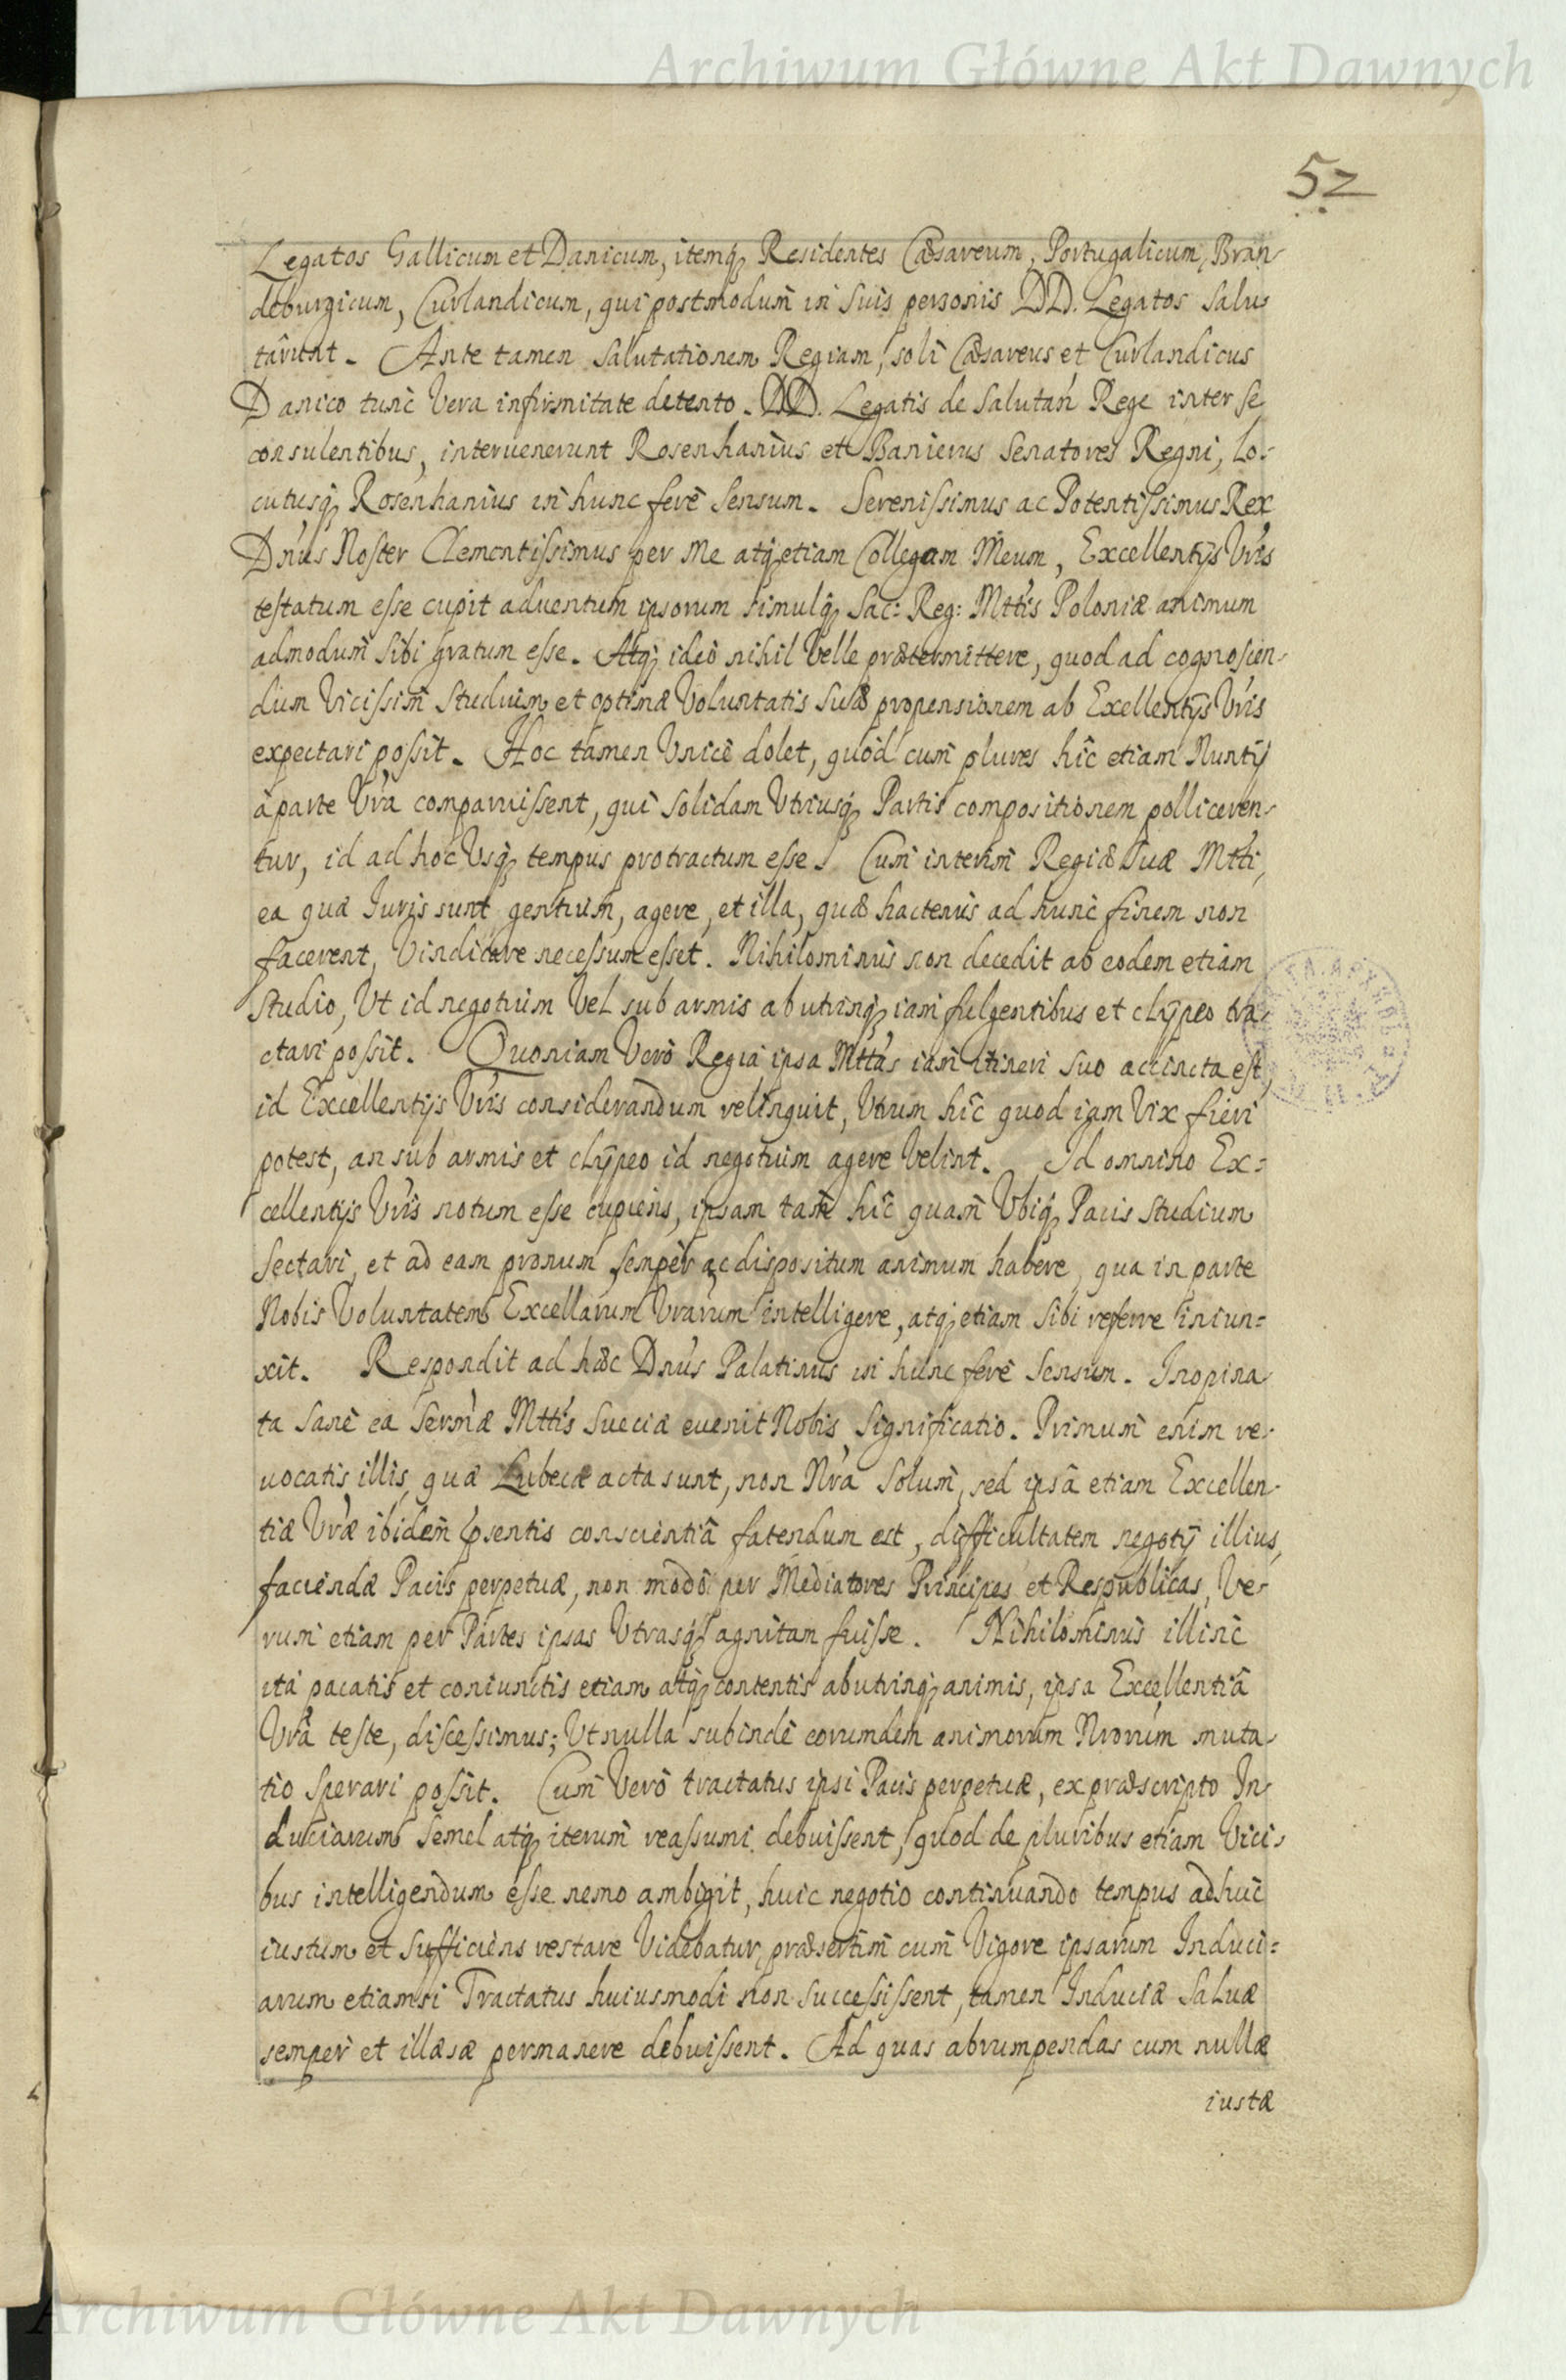 Archiwum Główne Akt Dawnych
52
Legatos Gallicum et Danicum, itemq; Residentes Cæsareum, Portugalicum, Bran-
deburgicum, Curlandicum, qui postmodum in suis personis DD. Legatos Salu-
târunt. Ante tamen Salutationem Regiam, soli Cæsareus et Curlandicus
Danico tunc Vera infirmitate detento. DD. Legatis de Salutan' Rege inter se
consulentibus, interuenerunt Rosenhanius et Banierus Senatores Regni, Lo-
cutusq; Rosenhanius in hunc ferè sensum. Serenissimus ac Potentissimus Rex
Dn'us Noster Clementissimus per Me atq; etiam Collegam Meum, Excellentijs Vr'is
testatum esse cupit aduentum ipsorum simulq; Sac: Reg: Mtt'is Poloniæ animum
admodum sibi gratum esse. Atq; ideò nihil Velle prætermittere, quod ad cognoscen-
dum Vicissim Studium et optimæ Voluntatis Suæ propensionem ab Exellentijs Vr'is
expectari possit. Hoc tamen Vnicè dolet, quòd cum plures hîc etiam Nuntij
à parte Vr'a comparuissent, qui Solidam Vtriusq; Partis compositionem polliceren-
tur, id ad hoc Vsq; tempus protractum esse. Cum interim Regiæ Suæ Mtt'i,
ea quæ Iuris sunt gentium, agere, et illa, quæ hactenus ad hunc finem non
facerent, Vindicare necessum esset. Nihilominus non decedit ab eodem etiam
Studio, Vt id negotium Vel sub armis ab utrinq; iam fulgentibus et clÿpeo tra-
ctari possit. Quoniam Verò Regia ipsa Mtt'as iam itineri suo accincta est,
id Excellentijs Vr'is considerandum relinquit, Vtrum hîc quod iam Vix fieri
potest, an sub armis et clÿpeo id negotium agere Velint. Id omnino Ex=
cellentijs Vr'is notum esse cupiens, ipsam tam hîc quam Vbiq; Pacis Studium
Sectari, et ad eam pronum semper ac dispositum animum habere, qua in parte
Nobis Voluntatem Excellarum Vrarum intelligere, atq; etiam sibi referre iniun=
xit. Respondit ad hæc Dn'us Palatinus in hunc ferè Sensum. Inopina-
ta Sanè ea Serm'æ Mtt'is Sueciæ euenit Nobis Significatio. Primum enim re-
uocatis illis, quæ Lubecæ acta sunt, non Nr'a Solum, sed ipsâ etiam Excellen-
tiæ Vr'æ ibidem p'sentis conscientiâ fatendum est, difficultatem negotÿ illius,
faciendæ Pacis perpetuæ, non modò per Mediatores Principes et Respublicas, Ve-
rum etiam per Partes ipsas Vtrasq; agnitam fuisse. Nihilominus illinc
ita pacatis et coniunctis etiam atq; contentis ab utrinq; animis, ipsa Excellentiâ
Vr'â teste, discessimus; Vt nulla subinde eorumdem animorum Nrorum muta-
tio Sperari possit. Cum Verò tractatus ipsi Pacis perpetuæ, ex præscripto In-
duciarum Semel atq; iterum reassumi debuissent, quod de pluribus etiam Vici-
bus intelligendum esse nemo ambigit, huic negotio continuando tempus adhuc
iustum et Sufficiens restare Videbatur, præsertim cum Vigore ipsarum Induci=
arum etiamsi Tractatus huiusmodi non Successissent, tamen Induciæ Saluæ
semper et illæsæ permanere debuissent. Ad quas abrumpendas cum nullæ
iustæ
Archiwum Główne Akt Dawnych